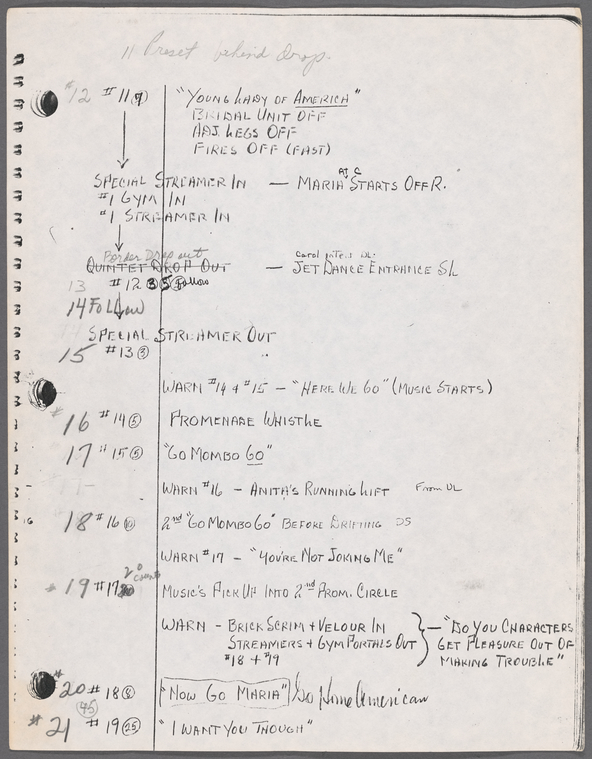 11 Preset behind drop.
#12 #11 (9) "YOUNG LADY OF AMERICA"
BRIDAL UNIT OFF
ADJ. LEGS OFF
FIRES OFF (FAST)
SPECIAL STREAMER IN — MARIA STARTS OFF R.
#1 GYM IN
#1 STREAMER IN
Border Drop out
QUINTET DROP OUT — JET DANCE ENTRANCE SL
13 #12 (5) Follow
14 FOLLOW
SPECIAL STREAMER OUT
15 #13 (3)
WARN #14 + #15 — "HERE WE GO" (MUSIC STARTS)
16 #14 (5) PROMENADE WHISTLE
17 #15 (5) "GO MOMBO GO"
WARN #16 — ANITA'S RUNNING LIFT From UL
18 #16 (10) 2nd "GO MOMBO GO" BEFORE DRIFTING DS
WARN #17 — "YOU'RE NOT JOKING ME"
19 #17 20 counts MUSIC'S PICK UP INTO 2nd PROM. CIRCLE
WARN - BRICK SCRIM + VELOUR IN } — "DO YOU CHARACTERS
STREAMERS + GYM PORTALS OUT GET PLEASURE OUT OF
#18 + #19 MAKING TROUBLE"
#20 #18 (8) "NOW GO MARIA" Go Home American
(45)
#21 #19 (25) "I WANT YOU THOUGH"